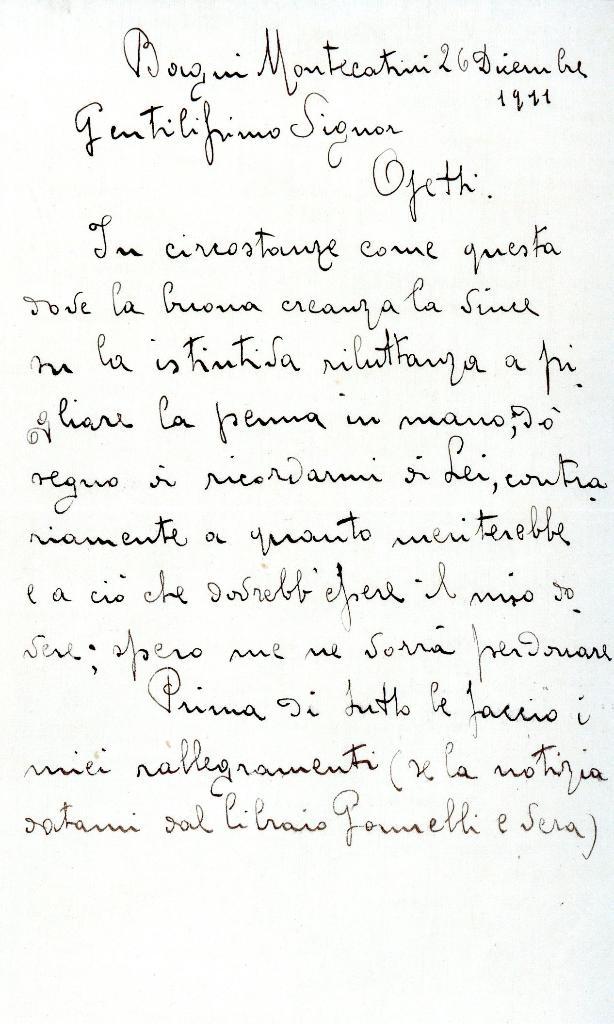 Bagni Montecatini 26 Diembre
1911
Gentilissimo Signor
Ojetti.
In circostanze come questa
dove la buona creanza la vince
su la istintiva riluttanza a pi-
gliare la penna in mano, dò
segno di ricordarmi di Lei, contra
riamente a quanto meriterebbe
e a ciò che dovrebb'essere il mio do-
vere; spero me ne vorrà perdonare
Prima di tutto le faccio i
miei rallegramenti (se la notizia
datami dal libraio Gonnelli è vera)